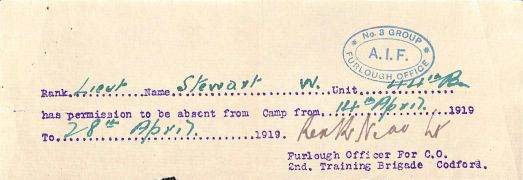 No. 3 GROUP
A.I.F.
FURLOUGH OFFICE
Rank Lieut Name Stewart W. Unit 44th Bn
has permission to be absent from Camp from 14th April 1919
To 28th April 1919.
Furlough Officer For C.O.
2nd. Training Brigade Codford.